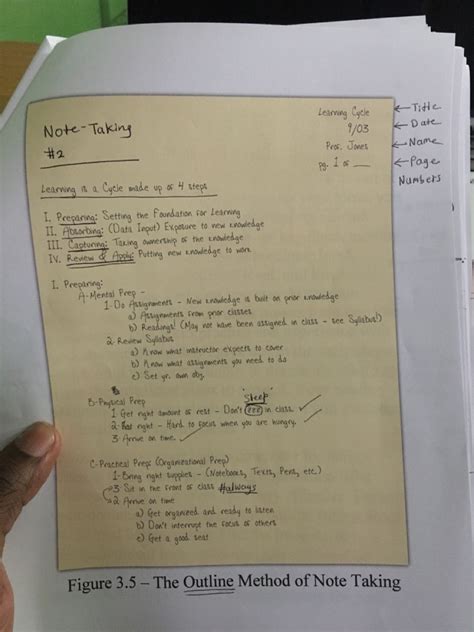 Note-Taking
#2
Learning Cycle
9/03
Prof. Jones
pg. 1 of __
Title
Date
Name
Page
Numbers
Learning is a Cycle made up of 4 steps
I. Preparing: Setting the Foundation for Learning
II. Absorbing: (Data Input) Exposure to new knowledge
III. Capturing: Taking ownership of the knowledge
IV. Review & Apply: Putting new knowledge to work
I. Preparing:
A-Mental Prep -
1-Do Assignments - New knowledge is built on prior knowledge
a) Assignments from prior classes
b) Readings! (May not have been assigned in class - see Syllabus!)
2-Review Syllabus
a) Know what instructor expects to cover
b) Know what assignments you need to do
c) Set yr. own obj.
B-Physical Prep
sleep
1 Get right amount of rest - Don't zzz in class.
2- right - Hard to focus when you are hungry.
3-Arrive on time.
C-Practical Prep: (Organizational Prep)
1-Bring right supplies - (Notebooks, Texts, Pens, etc.)
3-Sit in the front of class #always
2 Arrive on time
a) Get organized and ready to listen
b) Don't interrupt the focus of others
c) Get a good seat
Figure 3.5 – The Outline Method of Note Taking